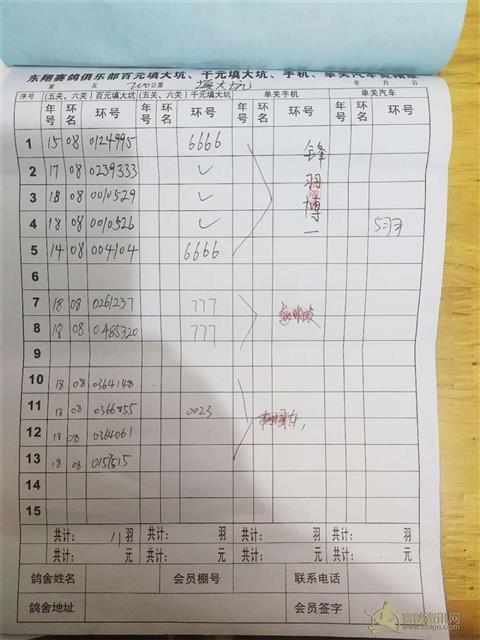 东翔赛鸽俱乐部百元填大坑、千元填大坑、手机、单关汽车竞翔单
第 关 700公里 填大坑 年 月 日
序号 (五关、六关)百元填大坑 (五关、六关)千元填大坑 单关手机 单关汽车
年号 环名 环号 年号 环名 环号 年号 环名 环号 年号 环名 环号
1 15 08 0124995 6666
2 17 08 0239333 ✓
3 18 08 0010529 ✓
4 18 08 0010526 ✓
5 14 08 004104 6666
锋羽博一
5羽
6
7 18 08 0261237 777
8 18 08 0485320 777
9
10 18 08 0364148
11 18 08 0366855 0023
12 18 08 0364061
13 18 08 0157515
14
15
共计: 11 羽 共计: 羽 共计: 羽 共计: 羽
共计: 元 共计: 元 共计: 元 共计: 元
鸽舍姓名 会员棚号 联系电话
鸽舍地址 会员签字
赛鸽资讯网
www.saige.com